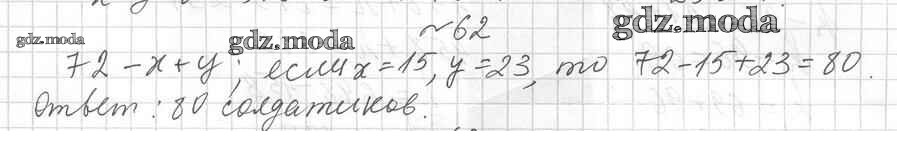 №62
gdz.moda gdz.moda gdz.moda
72-x+y; если x=15, y=23, то 72-15+23=80.
Ответ: 80 солдатиков.